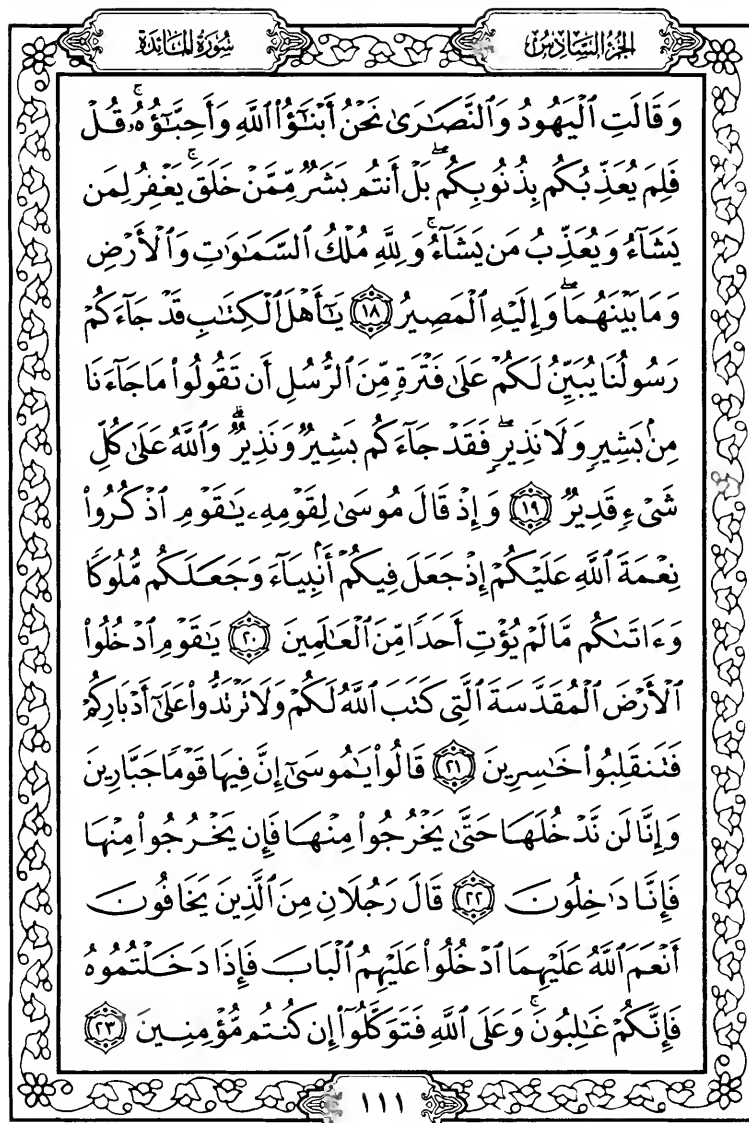 الجزء السادس
سورة المائدة
وَقَالَتِ ٱلْيَهُودُ وَٱلنَّصَٰرَىٰ نَحْنُ أَبْنَٰٓؤُا۟ ٱللَّهِ وَأَحِبَّٰٓؤُهُۥ ۚ قُلْ
فَلِمَ يُعَذِّبُكُم بِذُنُوبِكُم ۖ بَلْ أَنتُم بَشَرٌ مِّمَّنْ خَلَقَ ۚ يَغْفِرُ لِمَن
يَشَآءُ وَيُعَذِّبُ مَن يَشَآءُ ۚ وَلِلَّهِ مُلْكُ ٱلسَّمَٰوَٰتِ وَٱلْأَرْضِ
وَمَا بَيْنَهُمَا ۖ وَإِلَيْهِ ٱلْمَصِيرُ ١٨ يَٰٓأَهْلَ ٱلْكِتَٰبِ قَدْ جَآءَكُمْ
رَسُولُنَا يُبَيِّنُ لَكُمْ عَلَىٰ فَتْرَةٍ مِّنَ ٱلرُّسُلِ أَن تَقُولُوا۟ مَا جَآءَنَا
مِنۢ بَشِيرٍ وَلَا نَذِيرٍ ۖ فَقَدْ جَآءَكُم بَشِيرٌ وَنَذِيرٌ ۗ وَٱللَّهُ عَلَىٰ كُلِّ
شَىْءٍ قَدِيرٌ ١٩ وَإِذْ قَالَ مُوسَىٰ لِقَوْمِهِۦ يَٰقَوْمِ ٱذْكُرُوا۟
نِعْمَةَ ٱللَّهِ عَلَيْكُمْ إِذْ جَعَلَ فِيكُمْ أَنۢبِيَآءَ وَجَعَلَكُم مُّلُوكًا
وَءَاتَىٰكُم مَّا لَمْ يُؤْتِ أَحَدًا مِّنَ ٱلْعَٰلَمِينَ ٢٠ يَٰقَوْمِ ٱدْخُلُوا۟
ٱلْأَرْضَ ٱلْمُقَدَّسَةَ ٱلَّتِى كَتَبَ ٱللَّهُ لَكُمْ وَلَا تَرْتَدُّوا۟ عَلَىٰٓ أَدْبَارِكُمْ
فَتَنقَلِبُوا۟ خَٰسِرِينَ ٢١ قَالُوا۟ يَٰمُوسَىٰٓ إِنَّ فِيهَا قَوْمًا جَبَّارِينَ
وَإِنَّا لَن نَّدْخُلَهَا حَتَّىٰ يَخْرُجُوا۟ مِنْهَا فَإِن يَخْرُجُوا۟ مِنْهَا
فَإِنَّا دَٰخِلُونَ ٢٢ قَالَ رَجُلَانِ مِنَ ٱلَّذِينَ يَخَافُونَ
أَنْعَمَ ٱللَّهُ عَلَيْهِمَا ٱدْخُلُوا۟ عَلَيْهِمُ ٱلْبَابَ فَإِذَا دَخَلْتُمُوهُ
فَإِنَّكُمْ غَٰلِبُونَ ۚ وَعَلَى ٱللَّهِ فَتَوَكَّلُوٓا۟ إِن كُنتُم مُّؤْمِنِينَ ٢٣
١١١